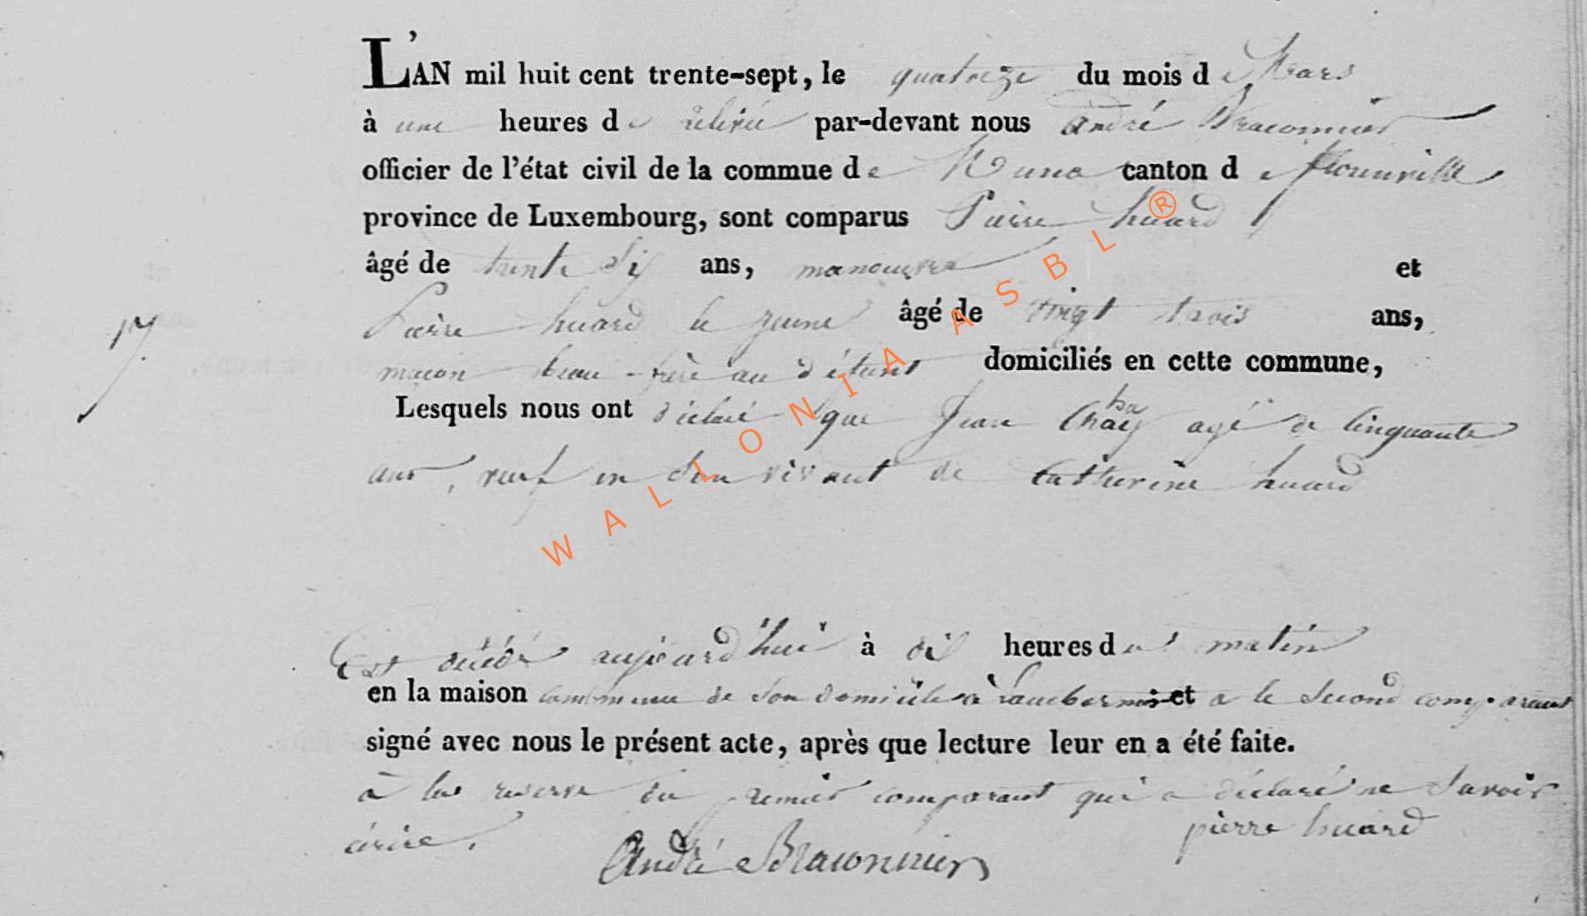 L'AN mil huit cent trente-sept, le quatorze du mois de Mars
à une heures de relevée par-devant nous André Braconnier
officier de l'état civil de la commue de Muno canton de florenville
province de Luxembourg, sont comparus Pierre huard
âgé de trente six ans, manoeuvre et
Pierre huard le jeune âgé de vingt trois ans,
macon beau-frère au défunt domiciliés en cette commune,
Lesquels nous ont déclaré que Jean agé de Cinquante
ans, veuf en son vivant de Catherine huard
Est décédé aujourd'hui à dix heures du matin
en la maison de son domicile à et a le second comparant
signé avec nous le présent acte, après que lecture leur en a été faite.
à la reserve du premier comparant qui a déclaré ne savoir
écrire.
pierre huard
André Braconnier
WALLONIA ASBL ®